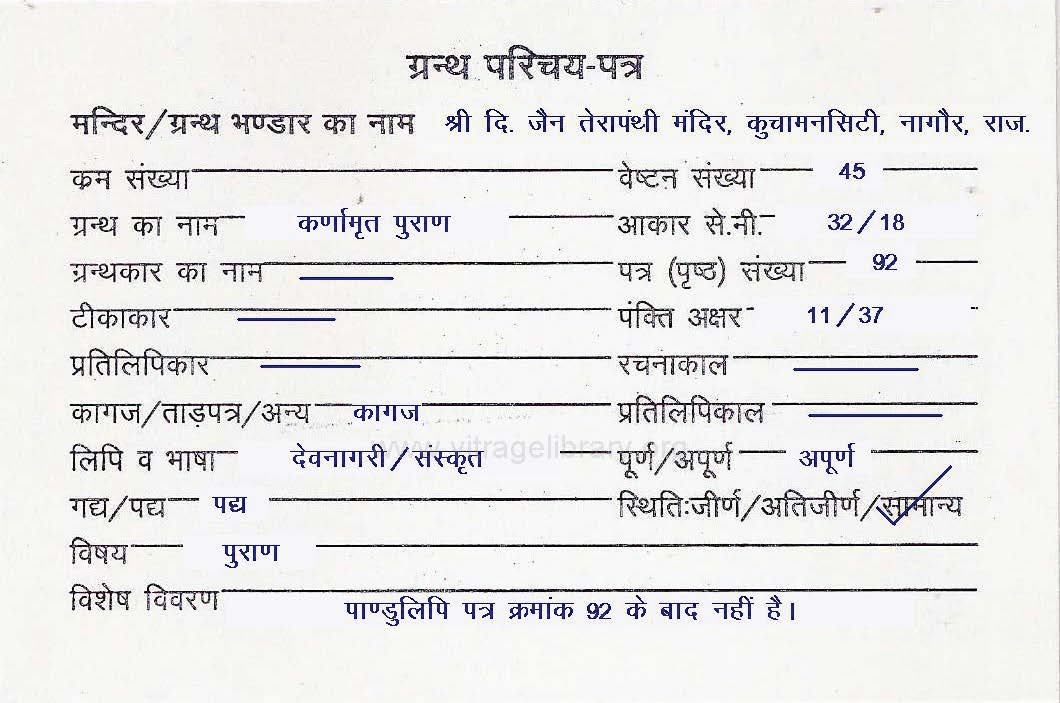 ग्रन्थ परिचय-पत्र
मन्दिर/ग्रन्थ भण्डार का नाम श्री दि. जैन तेरापंथी मंदिर, कुचामनसिटी, नागौर, राज.
कम संख्या वेष्टन संख्या 45
ग्रन्थ का नाम कर्णामृत पुराण आकार से.मी. 32/18
ग्रन्थकार का नाम पत्र (पृष्ठ) संख्या 92
टीकाकार पंक्ति अक्षर 11/37
प्रतिलिपिकार रचनाकाल
कागज/ताड़पत्र/अन्य कागज प्रतिलिपिकाल
www.vitragelibrary.org
लिपि व भाषा देवनागरी/संस्कृत पूर्ण/अपूर्ण अपूर्ण
गद्य/पद्य पद्य स्थितिःजीर्ण/अतिजीर्ण/सामान्य
विषय पुराण
विशेष विवरण पाण्डुलिपि पत्र क्रमांक 92 के बाद नहीं है।